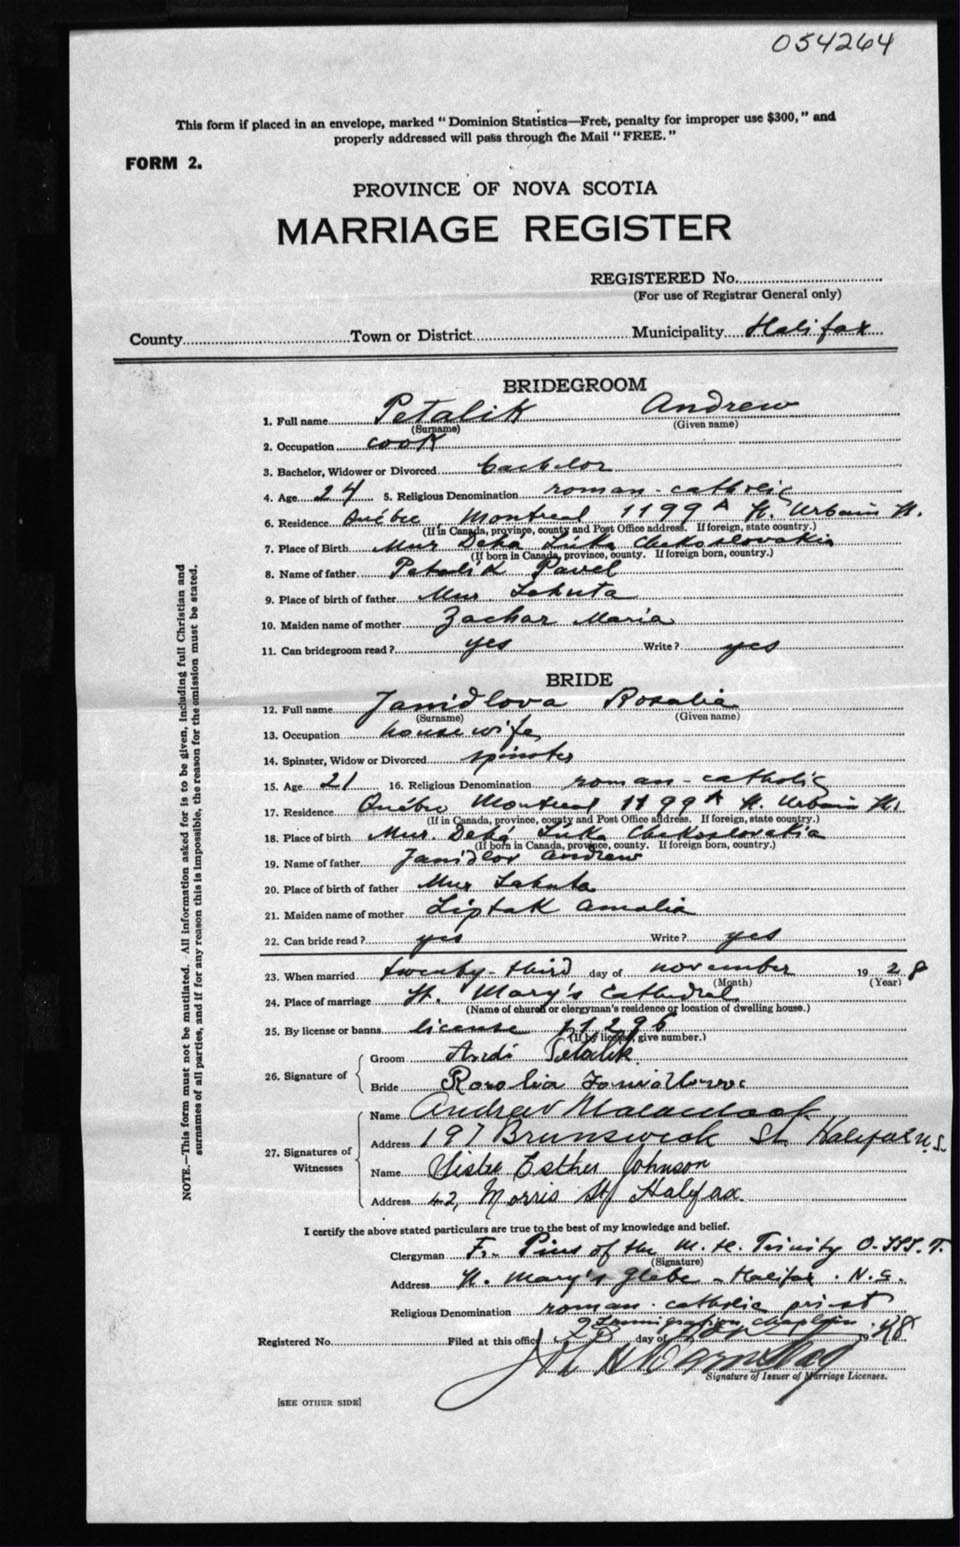 054264
This form if placed in an envelope, marked "Dominion Statistics—Free, penalty for improper use $300," and
properly addressed will pass through the Mail "FREE."
FORM 2.
PROVINCE OF NOVA SCOTIA
MARRIAGE REGISTER
REGISTERED No.
(For use of Registrar General only)
County Town or District Municipality Halifax
BRIDEGROOM
1. Full name Petalik Andrew
(Surname) (Given name)
2. Occupation cook
3. Bachelor, Widower or Divorced bachelor
4. Age 24 5. Religious Denomination roman-catholic
6. Residence Québec, Montreal 1199 A St. Urbain St.
(If in Canada, province, county and Post Office address. If foreign, state country.)
7. Place of Birth Mur Deka Luka Chekoslovakia
(If born in Canada, province, county. If foreign born, country.)
8. Name of father Petalik Pavel
9. Place of birth of father Mur Lehuta
10. Maiden name of mother Zachar Maria
11. Can bridegroom read? yes Write? yes
BRIDE
12. Full name Janidlova Rosalia
(Surname) (Given name)
13. Occupation housewife
14. Spinster, Widow or Divorced spinster
15. Age 21 16. Religious Denomination roman-catholic
17. Residence Québec Montreal 1199 A St. Urbain St.
(If in Canada, province, county and Post Office address. If foreign, state country.)
18. Place of birth Mur. Deká Luka Chekoslovakia
(If born in Canada, province, county. If foreign born, country.)
19. Name of father Janidlov Andrew
20. Place of birth of father Mur Lehuta
21. Maiden name of mother Liptak Amalia
22. Can bride read? yes Write? yes
23. When married twenty-third day of november 1928
(Month) (Year)
24. Place of marriage St. Mary's Cathedral
(Name of church or clergyman's residence or location of dwelling house.)
25. By license or banns license 11296
(If by license, give number.)
26. Signature of
Groom Petalik
Bride Rosalia
27. Signatures of Witnesses
Name Andrew
Address 197 Brunswick St. Halifax N.S.
Name Sister Esther Johnson
Address 42, Morris St, Halifax
I certify the above stated particulars are true to the best of my knowledge and belief.
Clergyman Fr. Pius of the M. H. Trinity O.SS.T.
(Signature)
Address St. Mary's Glebe - Halifax. N.S.
Religious Denomination roman-catholic priest
Immigration chaplain
Registered No. Filed at this office day of 1928
Signature of Issuer of Marriage Licenses.
[SEE OTHER SIDE]
NOTE.—This form must not be mutilated. All information asked for is to be given, including full Christian and
surnames of all parties, and if for any reason this is impossible, the reason for the omission must be stated.